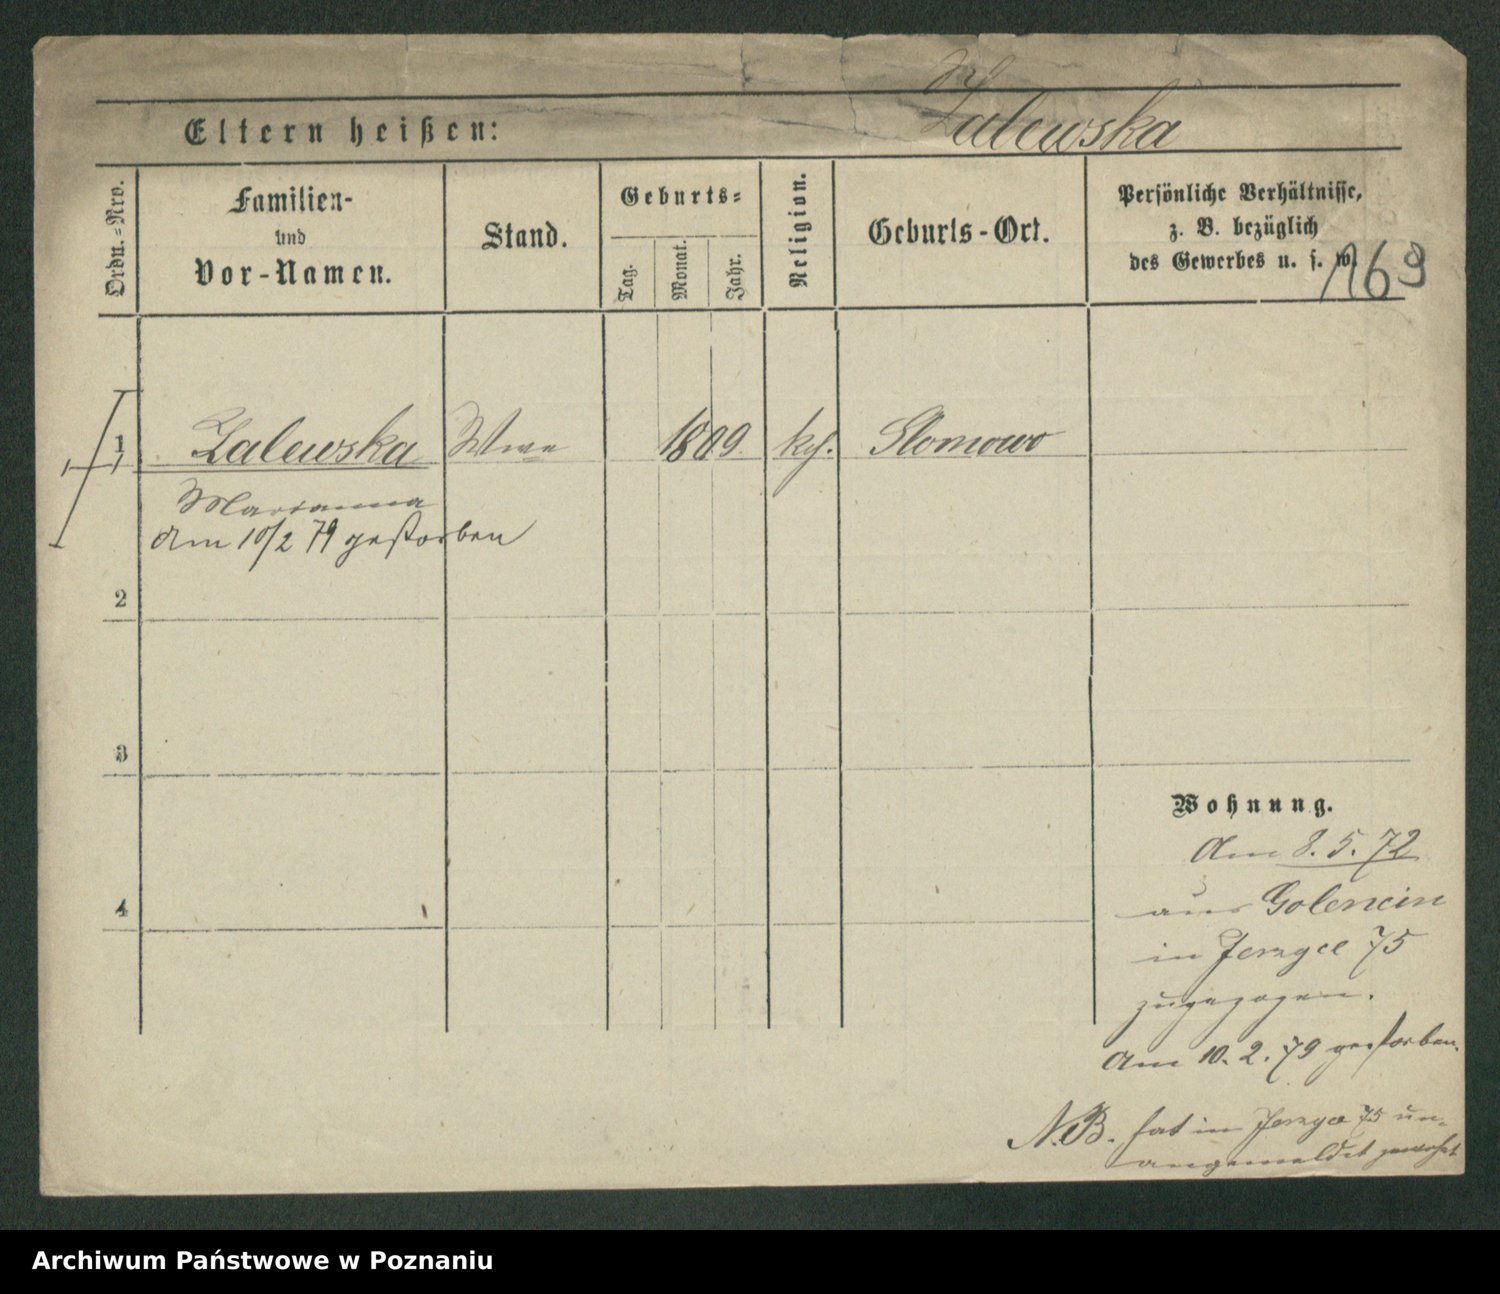 Zalewska
Eltern heißen:
Ordn.=Nro.
Familien-
und
Vor-Namen.
Stand.
Geburts=
Tag.
Monat.
Jahr.
Religion.
Geburts-Ort.
Persönliche Verhältnisse,
z. B. bezüglich
des Gewerbes u. s. w.
169
1 Zalewska Wwe 1809 kg. Slomowo
Marianna
am 10/2 79 gestorben
2
3
4
Wohnung.
Am 8. 5. 72
aus Golencin
in Jerzyce 75
zugezogen.
Am 10. 2. 79 gestorben.
N.B. hat in Jerzyce 75 un-
angemeldet gewohnt
Archiwum Państwowe w Poznaniu